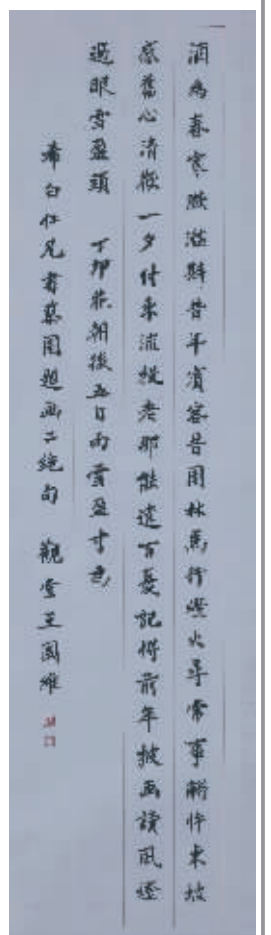 酒為春寒滋斟昔年賓客昔園林馬行燈火尋常事解忤東坡
感舊心清歡一夕付東流投老那能遣百憂記得前年披画讀風燈
過眼雪盈頭 丁卯花朝後五日雨雪盈寸
希白仁兄書慕園題画二絕句 觀堂王國維